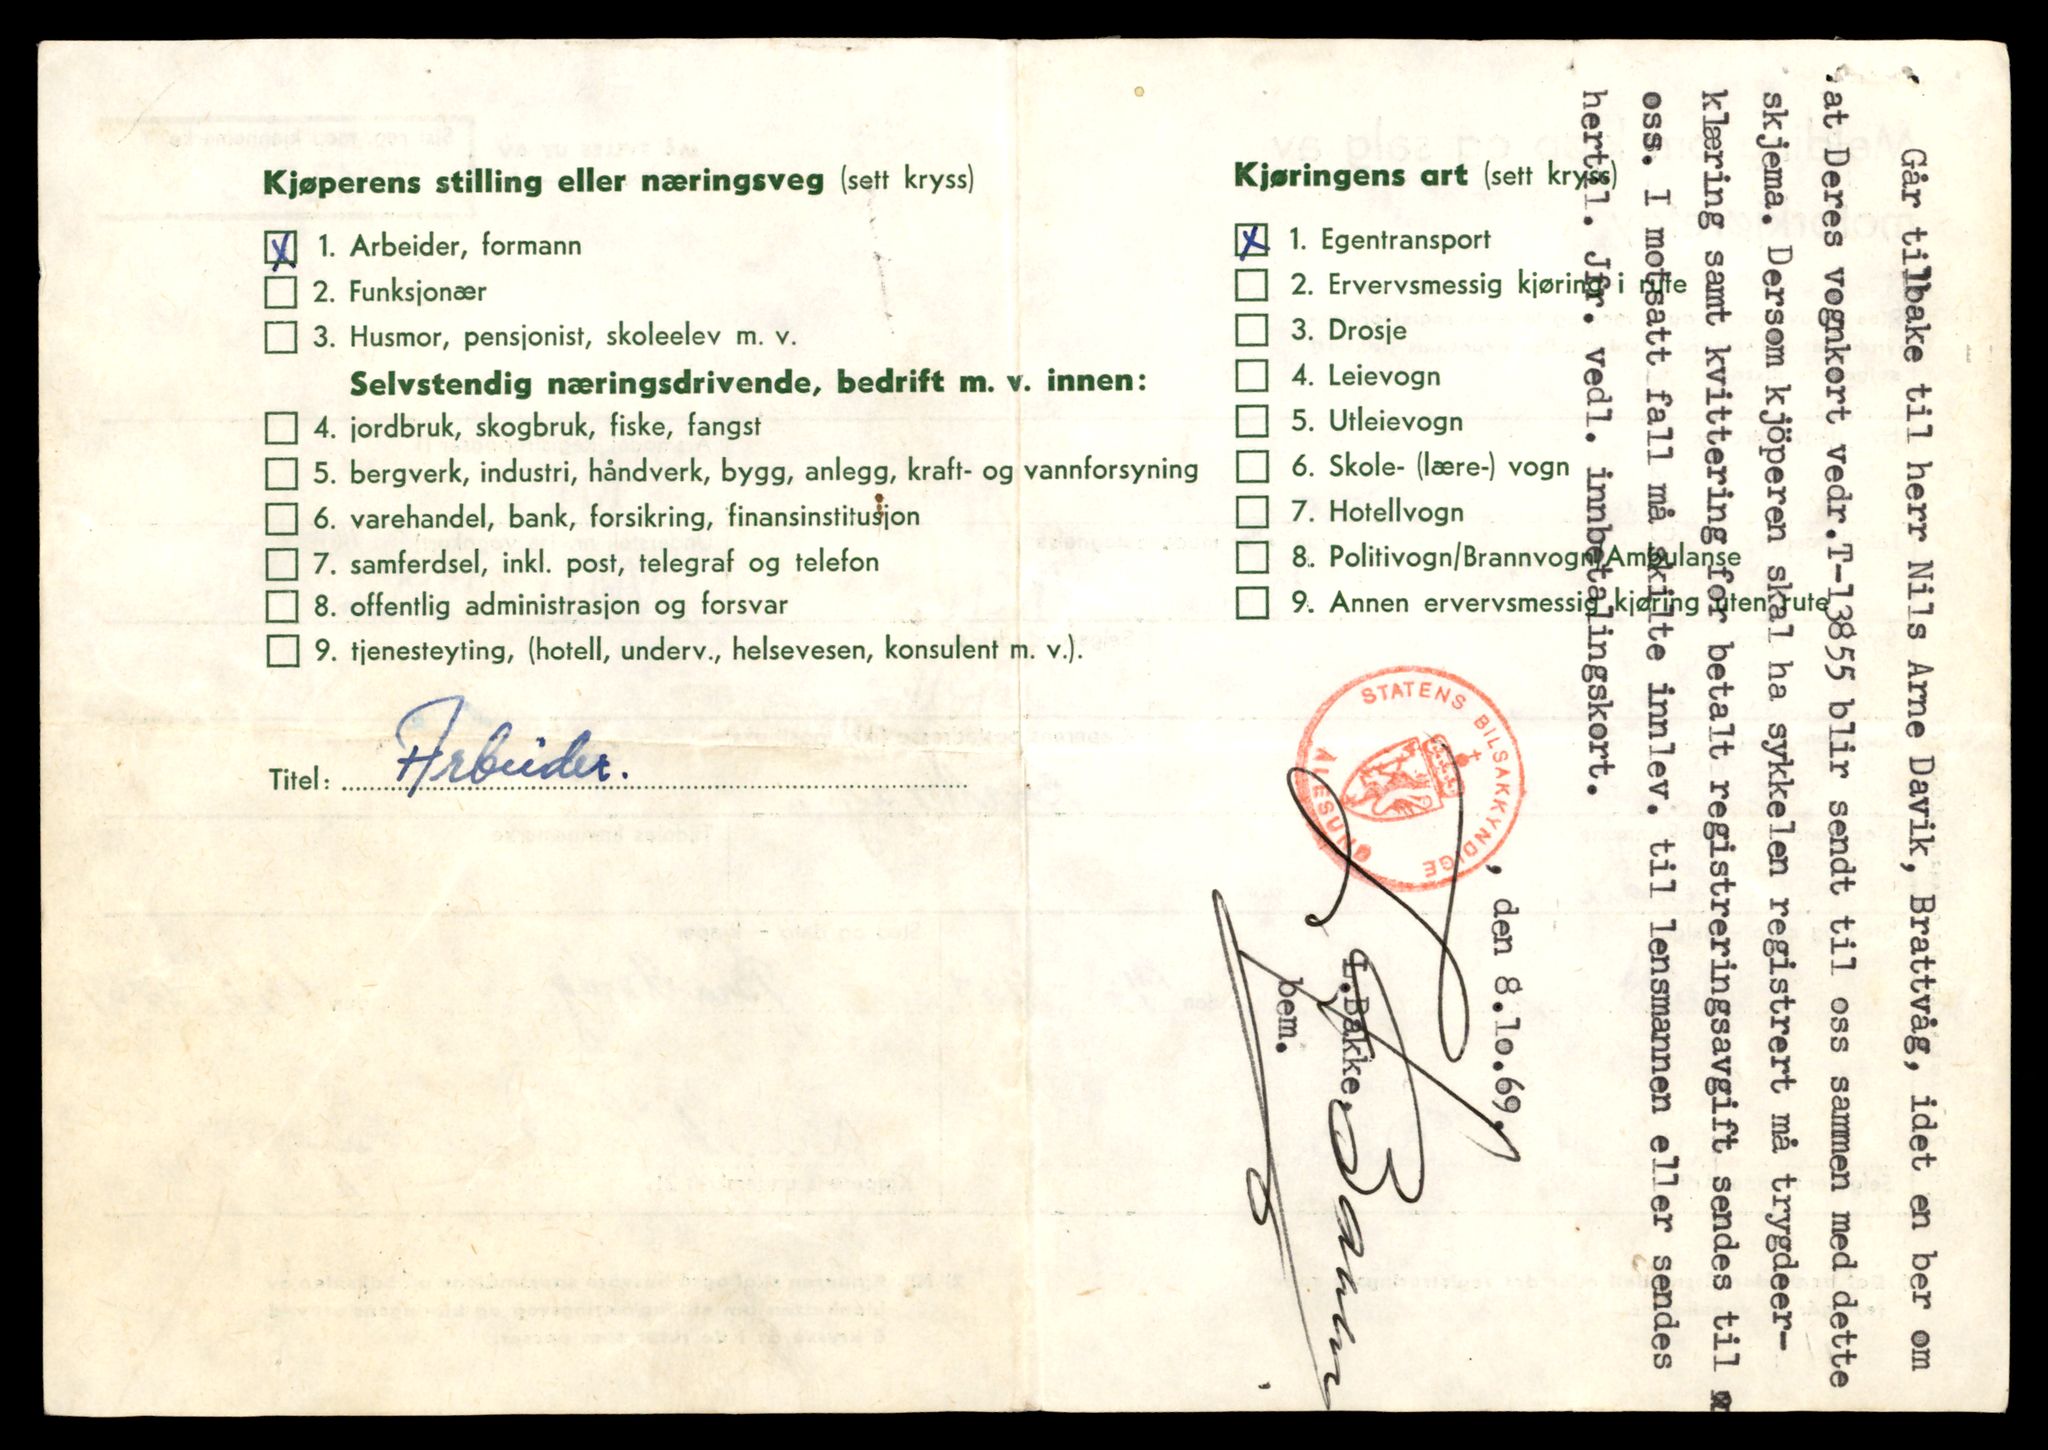 Kjøperens stilling eller næringsveg (sett kryss)
X 1. Arbeider, formann
2. Funksjonær
3. Husmor, pensjonist, skoleelev m. v.
Selvstendig næringsdrivende, bedrift m. v. innen:
4. jordbruk, skogbruk, fiske, fangst
5. bergverk, industri, håndverk, bygg, anlegg, kraft- og vannforsyning
6. varehandel, bank, forsikring, finansinstitusjon
7. samferdsel, inkl. post, telegraf og telefon
8. offentlig administrasjon og forsvar
9. tjenesteyting, (hotell, underv., helsevesen, konsulent m. v.).
Titel: Arbeider.
Kjøringens art (sett kryss)
X 1. Egentransport
2. Ervervsmessig kjøring i rute
3. Drosje
4. Leievogn
5. Utleievogn
6. Skole- (lære-) vogn
7. Hotellvogn
8. Politivogn/Brannvogn/Ambulanse
9. Annen ervervsmessig kjøring uten rute
Går tilbake til herr Nils Arne Davik, Brattvåg, idet en ber om
at Deres vognkort vedr. T-13855 blir sendt til oss sammen med dette
skjema. Dersom kjöperen skal ha sykkelen registrert må trygdeer-
klæring samt kvittering for betalt registreringsavgift sendes til
oss. I motsatt fall må skilte innlev. til lensmannen eller sendes
hertil. Jfr. vedl. innbetalingskort.
, den 8.10.69.
STATENS BILSAKKYNDIGE
ÅLESUND
L.Bakke,
bem.